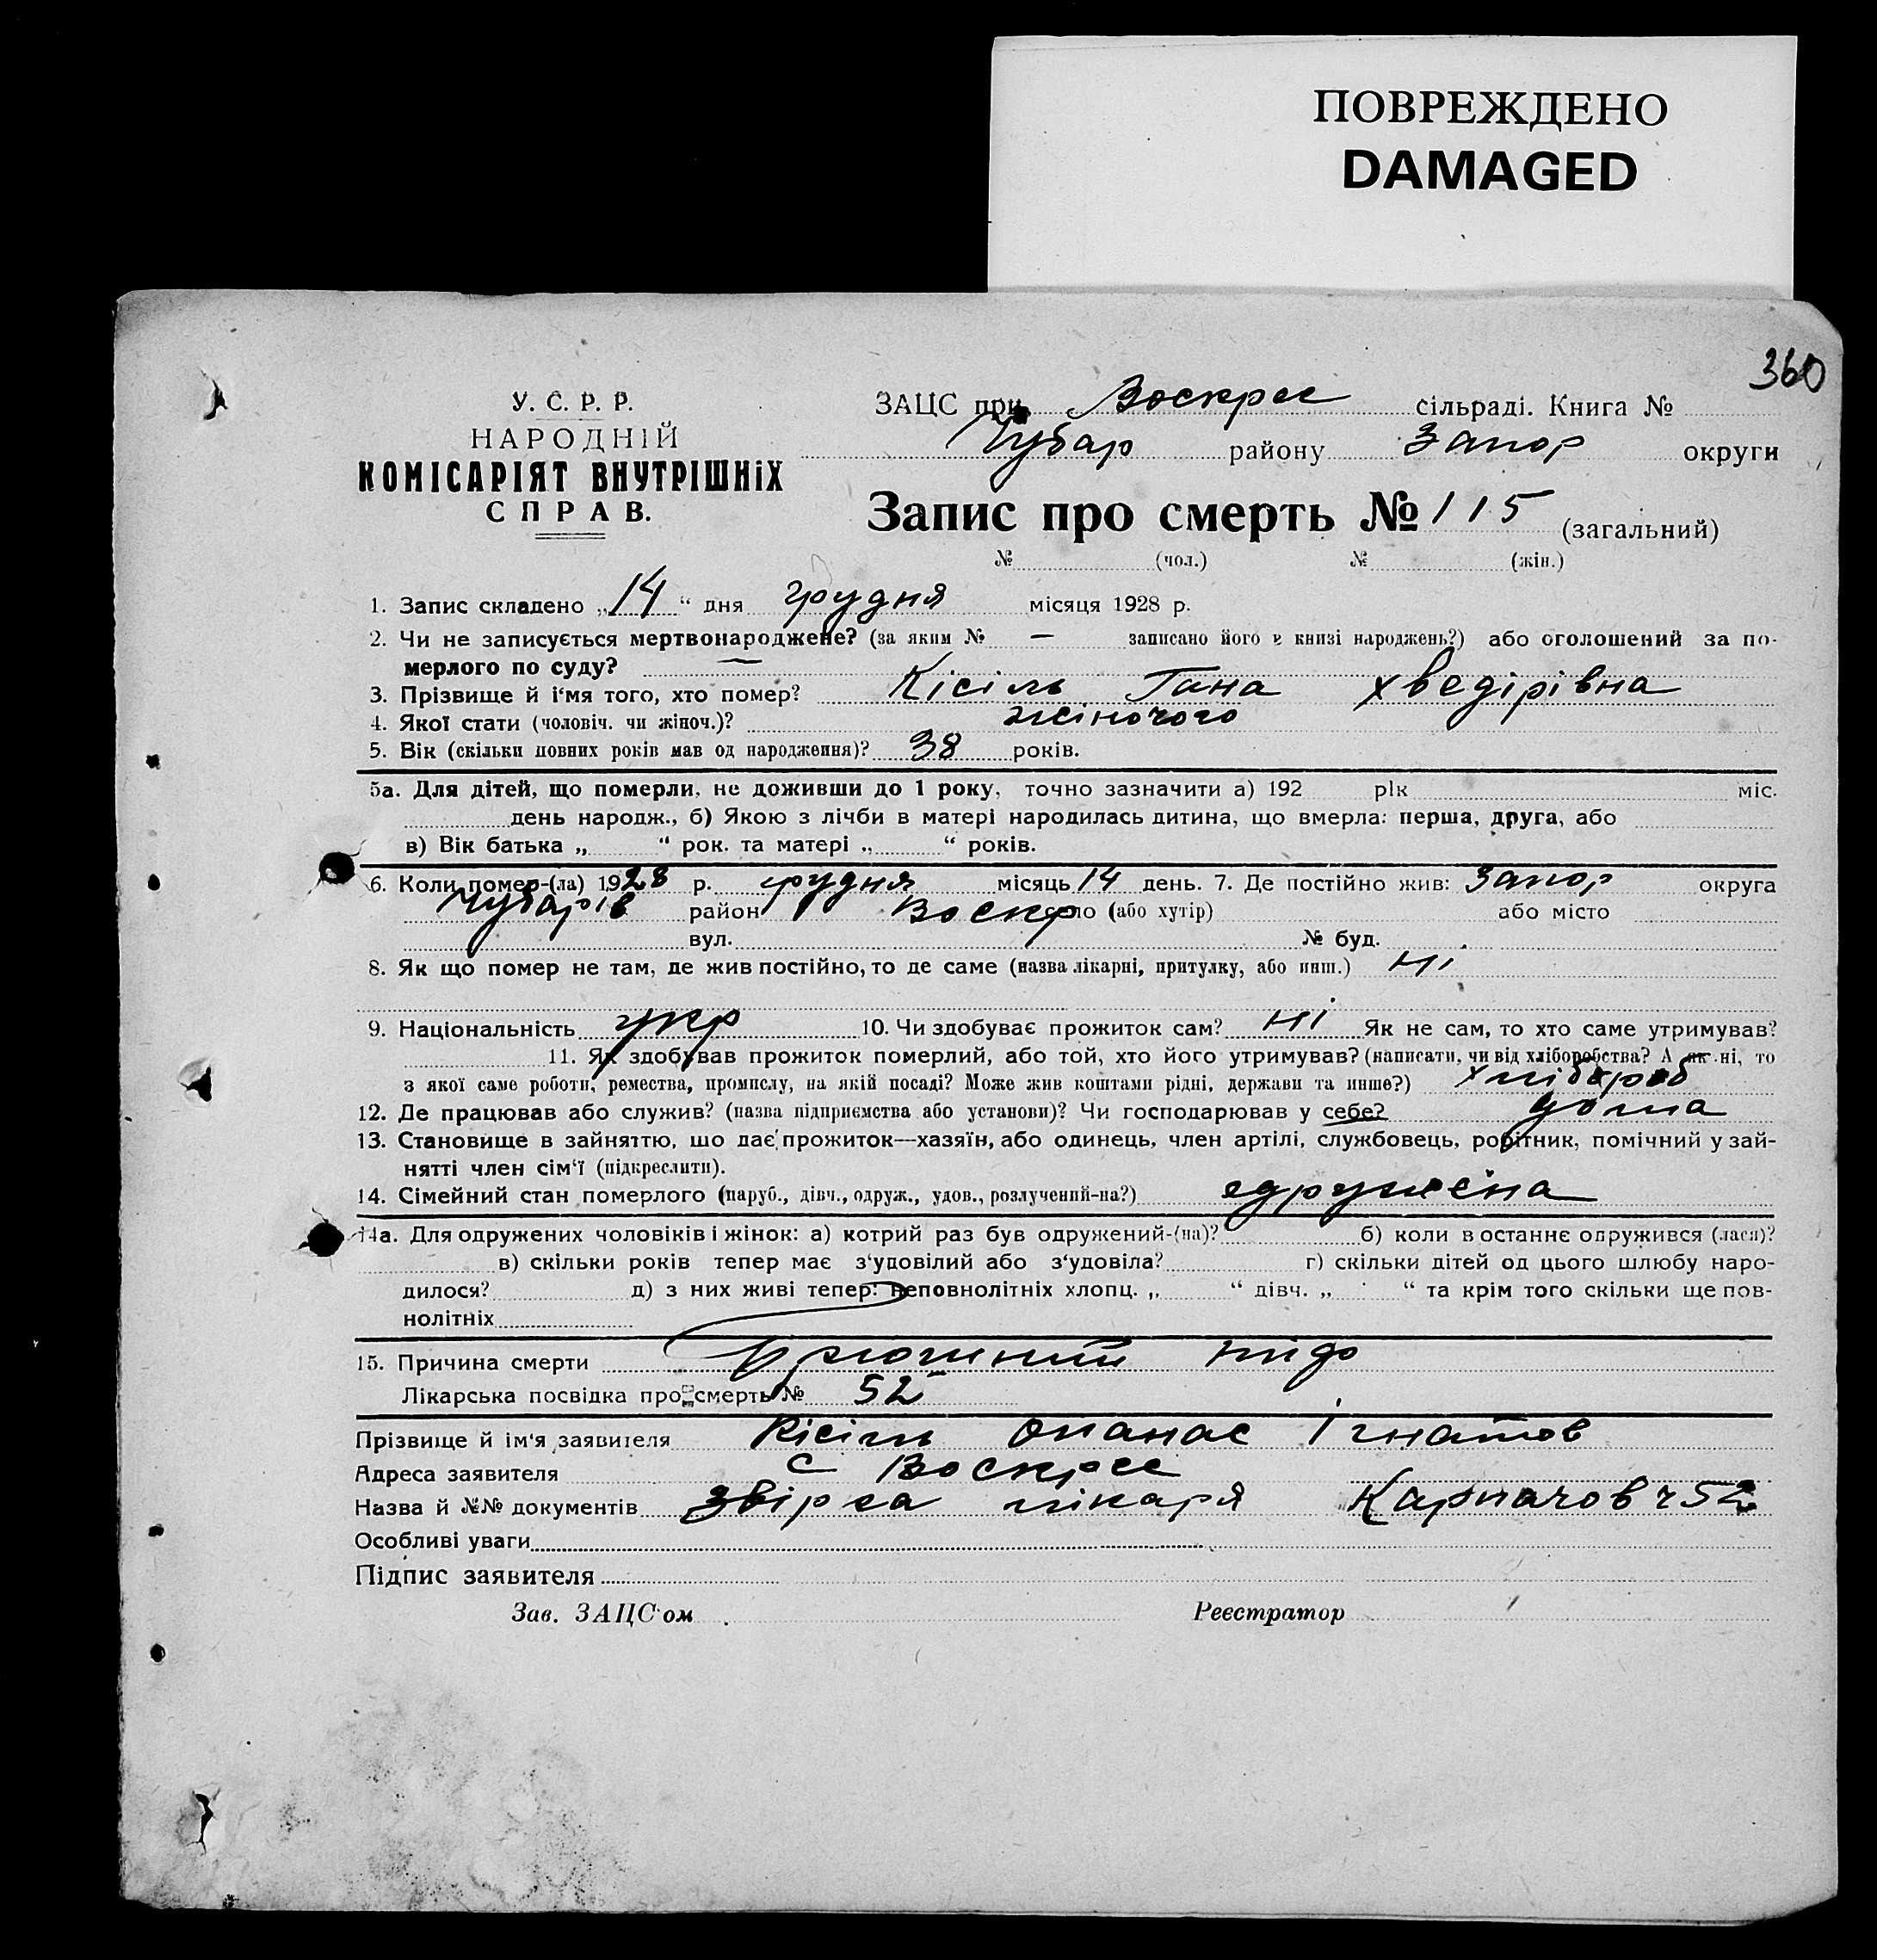 ПОВРЕЖДЕНО
DAMAGED
360
У. С. Р. Р.
НАРОДНІЙ
КОМІСАРІЯТ ВНУТРІШНІХ
СПРАВ.
ЗАЦС при Воскрес сільраді. Книга №
Чубар району Запор округи
Запис про смерть № 115 (загальний)
№ (чол.) № (жін.)
1. Запис складено „14“ дня грудня місяця 1928 р.
2. Чи не записується мертвонароджене? (за яким № — записано його в книзі народжень?) або оголошений за по-
мерлого по суду? —
3. Прізвище й і‘мя того, хто помер? Кісіль Гана Хведірівна
4. Якої стати (чоловіч. чи жіноч.)? жіночого
5. Вік (скільки повних років мав од народження)? 38 років.
5а. Для дітей, що померли, не доживши до 1 року, точно зазначити а) 192 рік міс.
день народж., б) Якою з лічби в матері народилась дитина, що вмерла: перша, друга, або
в) Вік батька „ “ рок. та матері „ “ років.
6. Коли помер-(ла) 1928 р. грудня місяць 14 день. 7. Де постійно жив: Запор округа
Чубарів район Воскр село (або хутір) або місто
вул. № буд.
8. Як що помер не там, де жив постійно, то де саме (назва лікарні, притулку, або инш.) ні
9. Національність укр 10. Чи здобуває прожиток сам? ні Як не сам, то хто саме утримував?
11. Як здобував прожиток померлий, або той, хто його утримував? (написати, чи від хліборобства? А як ні, то
з якої саме роботи, ремества, промислу, на якій посаді? Може жив коштами рідні, держави та инше?) хлібороб
12. Де працював або служив? (назва підприємства або установи)? Чи господарював у себе? дома
13. Становище в зайняттю, що дає прожиток—хазяїн, або одинець, член артілі, службовець, робітник, помічний у зай-
нятті член сім‘ї (підкреслити).
14. Сімейний стан померлого (паруб., дівч., одруж., удов., розлучений-на?) одружена
14а. Для одружених чоловіків і жінок: а) котрий раз був одружений-(на)? б) коли востаннє одружився (лася)?
в) скільки років тепер має з‘удовілий або з‘удовіла? г) скільки дітей од цього шлюбу наро-
дилося? д) з них живі тепер: неповнолітніх хлопц. „ “ дівч. „ “ та крім того скільки ще пов-
нолітніх
15. Причина смерти
Лікарська посвідка про смерть № 52
Прізвище й ім‘я заявителя Кісіль Опанас Ігнатов
Адреса заявителя с Воскрес
Назва й №№ документів лікаря Карпачов ч 52
Особливі уваги
Підпис заявителя
Зав. ЗАЦС‘ом Реєстратор